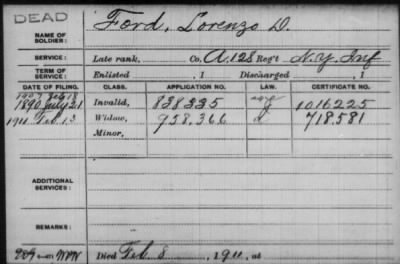 DEAD
NAME OF SOLDIER: Ford, Lorenzo D.
SERVICE: Late rank, Co. A, 128 Reg't N.Y. Inf
TERM OF SERVICE: Enlisted , 1 Discharged , 1
DATE OF FILING. CLASS. APPLICATION NO. LAW. CERTIFICATE NO.
1907 Feb 18
1890 July 21 Invalid, 838225 1016225
1911 Feb 13 Widow, 958.366 718.581
Minor,
ADDITIONAL SERVICES:
REMARKS:
Died Feb 8, 1911, at